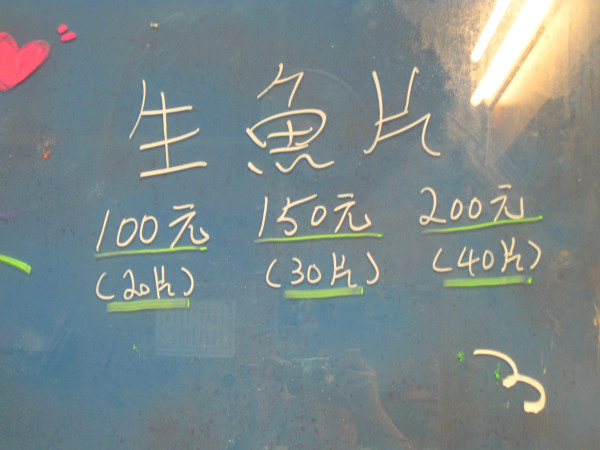 生魚片
100元 150元 200元
(20片) (30片) (40片)